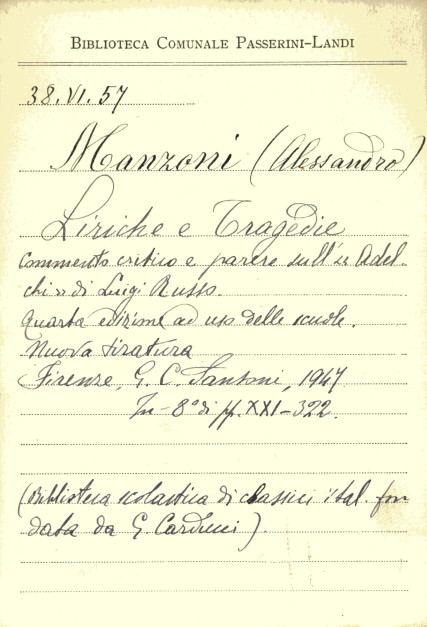 BIBLIOTECA COMUNALE PASSERINI-LANDI
38.VI.57
Manzoni (Alessandro)
Liriche e Tragedie
commento critico e parere sull'« Adel-
chi » di Luigi Russo.
Quarta edizione ad uso delle scuole.
Nuova tiratura
Firenze, G. C. Sansoni, 1947
In-8° di pp. XXI-322.
(Biblioteca scolastica di classici ital. fon
data da G. Carducci).